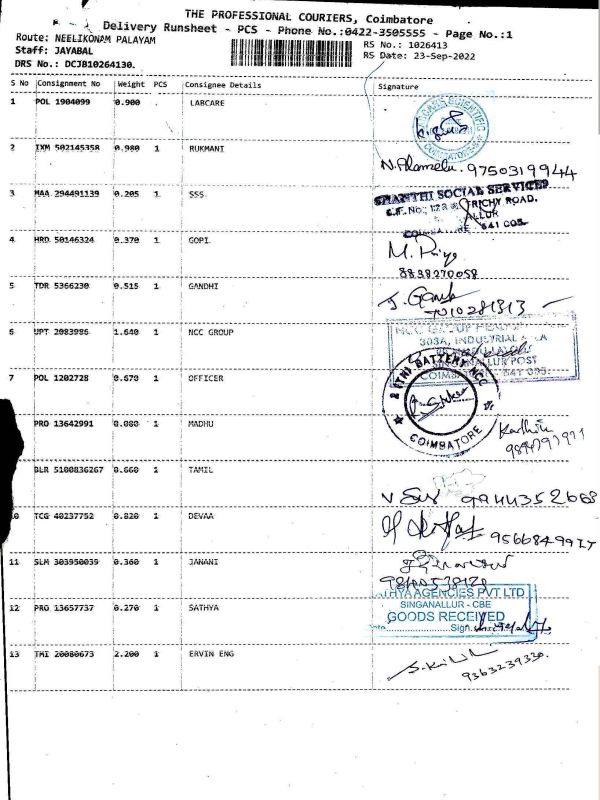 THE PROFESSIONAL COURIERS, Coimbatore
Delivery Runsheet - PCS - Phone No.:0422-3505555 - Page No.:1
Route: NEELIKONAM PALAYAM
RS No.: 1026413
Staff: JAYABAL
RS Date: 23-Sep-2022
DRS No.: DCJB10264130.
S No Consignment No Weight PCS Consignee Details Signature
1 POL 1904099 0.900 LABCARE
2 IXM 502145358 0.980 1 RUKMANI
9750319944
3 MAA 294491139 0.205 1 SSS
SHANTHI SOCIAL SERVICES
TRICHY ROAD.
4 HRD 50146324 0.370 1 GOPI
M. Priya
8838270058
5 TDR 5366230 0.515 1 GANDHI
7010281313
6 UPT 2083986 1.640 1 NCC GROUP
303A, INDUSTRIAL
7 POL 1202728 0.670 1 OFFICER
BATTERY NCC
COIMBATORE
PRO 13642991 0.080 1 MADHU
BLR 5100836267 0.660 1 TAMIL
9944352668
TCG 40237752 0.820 1 DEVAA
11 SLM 303950039 0.360 1 JANANI
12 PRO 13657737 0.270 1 SATHYA
AGENCIES PVT LTD
SINGANALLUR - CBE
GOODS RECEIVED
Sign.
13 TMI 20080673 2.200 1 ERVIN ENG
9363239330